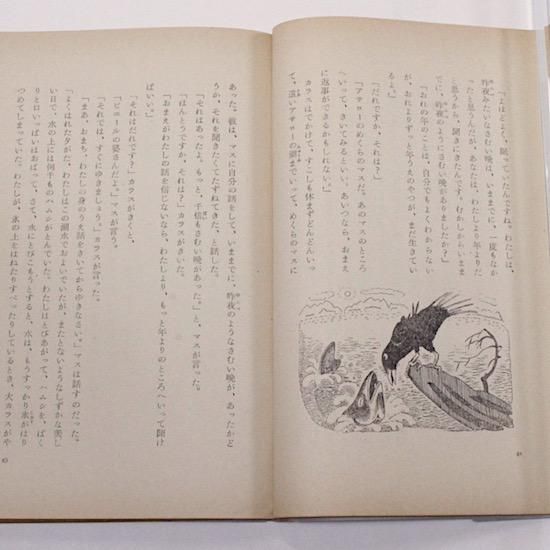 「よほどよく、眠ってったんですね。わたしは、
昨夜みたいなさむい晩は、いままでに、一度もなか
ったと思うんだが、あなたは、わたしより年よりだ
と思うから、聞きにきたんです。むかしからいまま
でに、昨夜のようにさむい晩がありましたか？」
「おれの年のことは、自分でもよくわからない
が、おれよりずっと年うえのやつが、まだ生きてい
るよ。」
「だれですか、それは？」
「アサローのめくらのマスだ。あのマスのところ
へいって、きいてみるといい。あいつなら、おまえ
に返事ができるかもしれない。」
カラスはでかけて、すこしも休まずどんどんいっ
て、遠いアサローの湖までいって、めくらのマスに
あった。彼は、マスに自分の話をして、いままでに、昨夜のようなさむい晩が、あったかど
うか、それを聞きたくてたずねてきた、と話した。
「それはあったよ。もっと、千倍もさむい晩があった。」と、マスが言った。
「ほんとうですか、それは？」カラスがきいた。
「おまえがわたしの話を信じないなら、わたしより、もっと年よりのところへいって聞け
ばいい。」
「それはだれです？」カラスがきくと、
「ビェールの婆さんだよ。」マスが言う。
「それでは、すぐにゆきましょう。」カラスが言った。
「まあ、おまち、わたしの身のうえ話をきいてからゆきなさい。」マスは話すのだった。
「よくはれた夕がた、わたしはこの湖水でおよいでいたが、またとないようなしずかな美し
い日で、水の上には何千ものハムシがとんでいた。わたしはとびあがって、ハムシを、ぱく
りと口いっぱいおばって、さて、水にとびこもうとすると、水は、もうすっかり氷がはり
つめてしまっていた。わたしが、氷の上をはねたりすべったりしているとき、大カラスがや